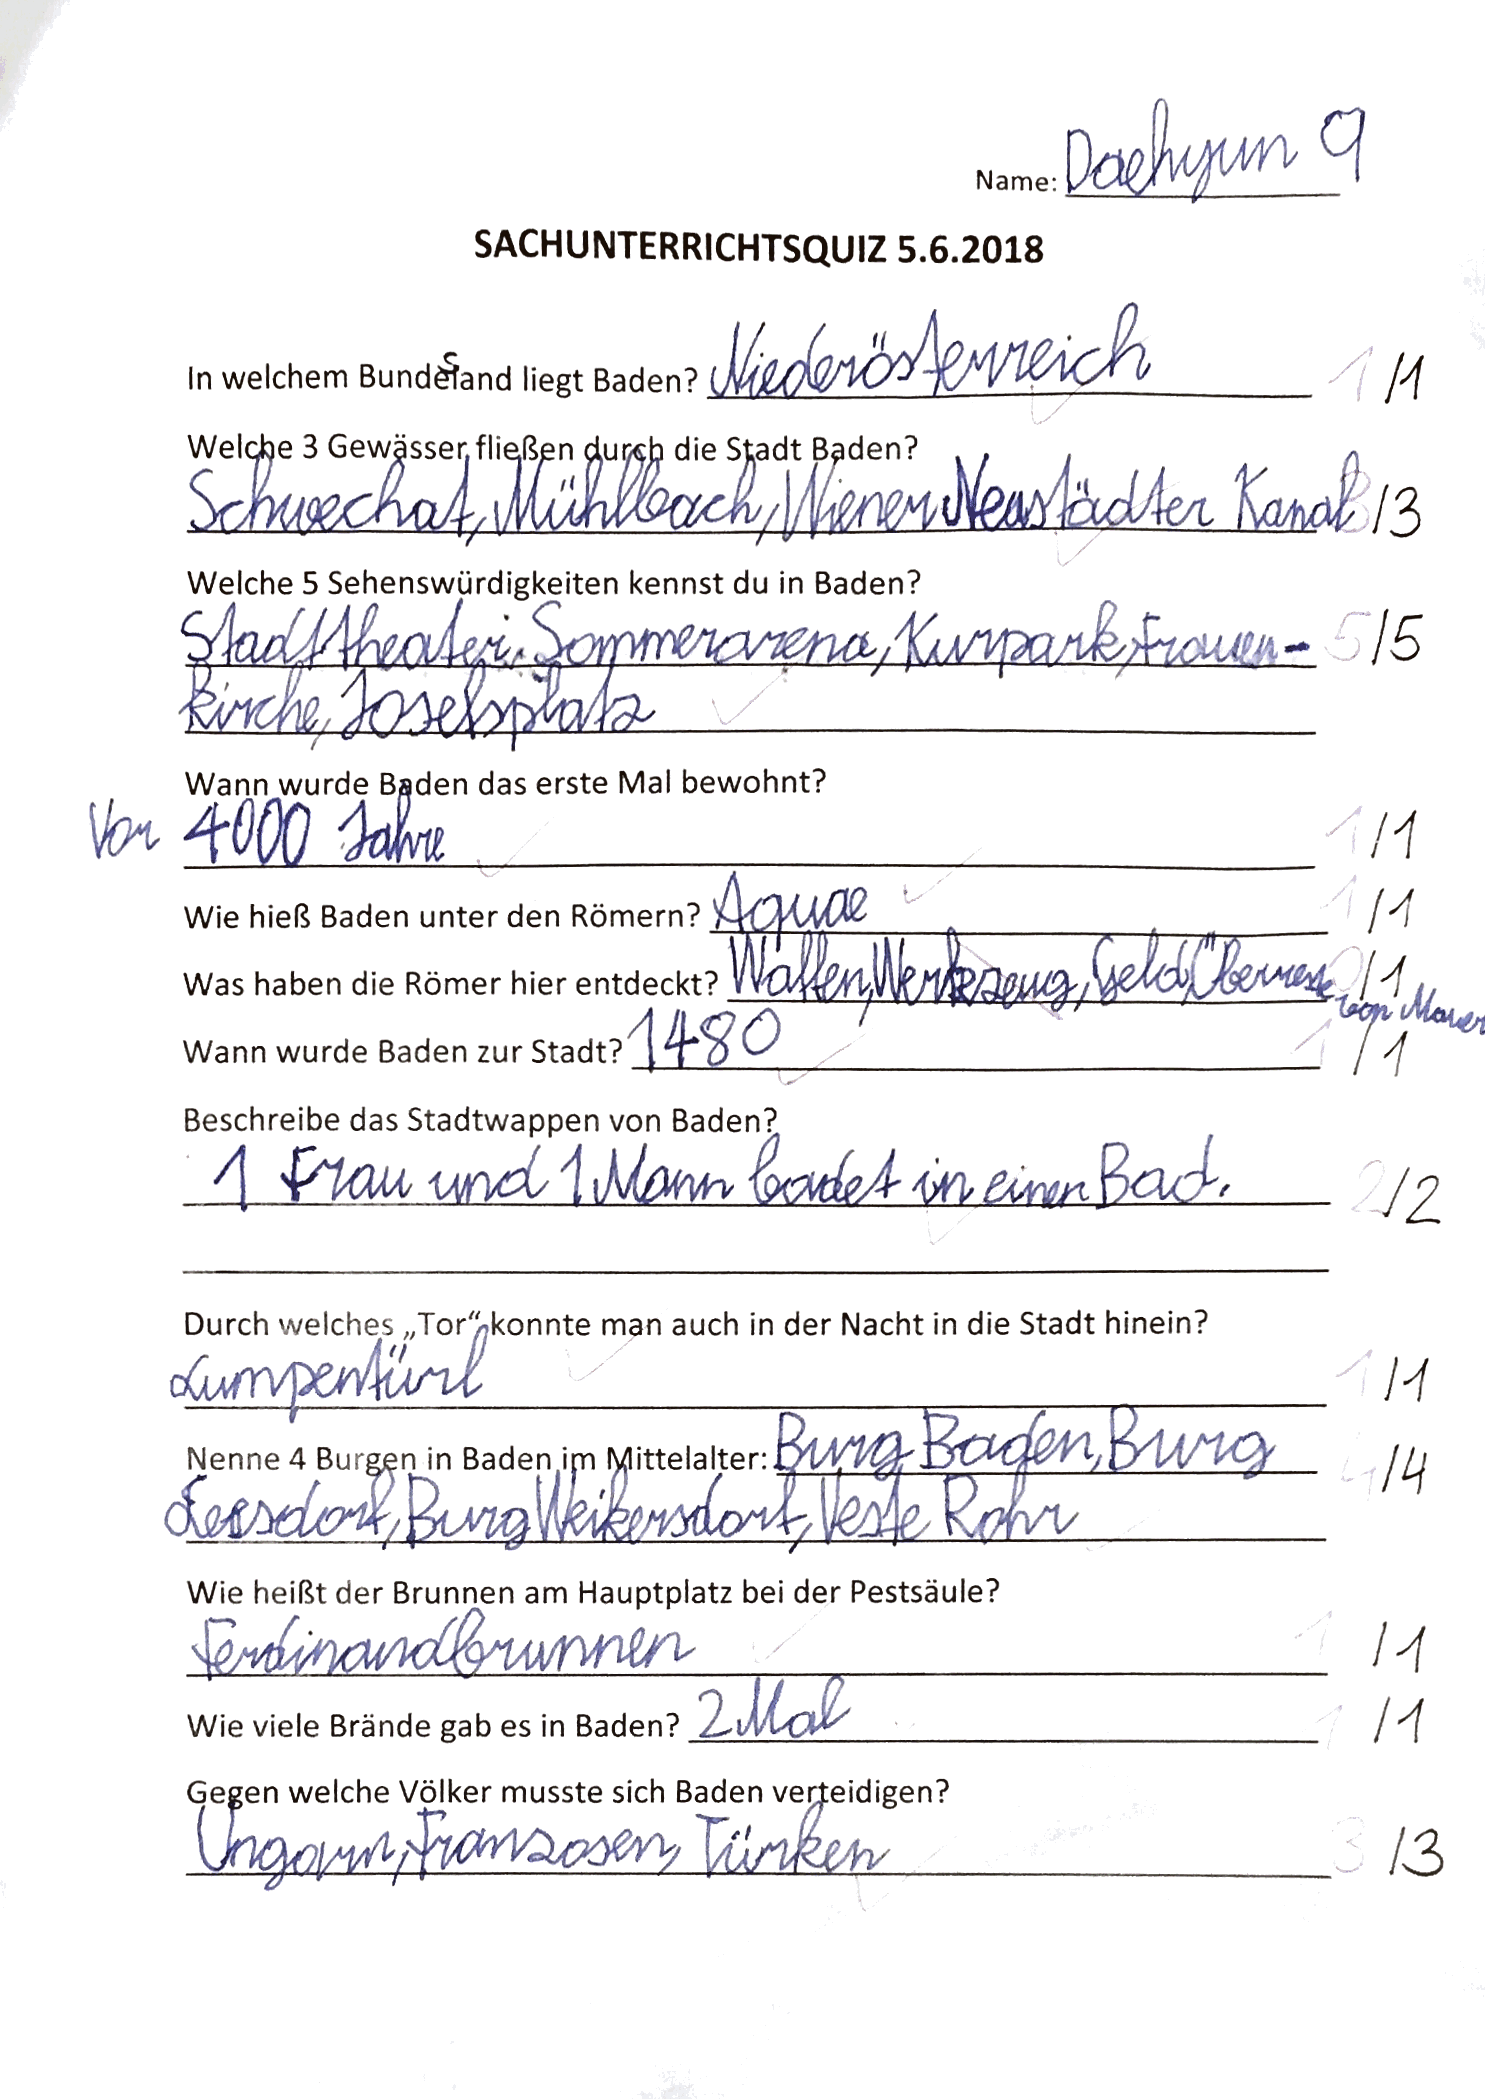 Name: Daehyun 9
SACHUNTERRICHTSQUIZ 5.6.2018
In welchem Bundesland liegt Baden? Niederösterreich 1/1
Welche 3 Gewässer fließen durch die Stadt Baden?
Schwechat, Mühlbach, Wiener Neustädter Kanal 3/3
Welche 5 Sehenswürdigkeiten kennst du in Baden?
Stadttheater, Sommerarena, Kurpark, Frauen- 5/5
kirche, Josefsplatz
Wann wurde Baden das erste Mal bewohnt?
Vor 4000 Jahre 1/1
Wie hieß Baden unter den Römern? Aquae 1/1
Was haben die Römer hier entdeckt? Waffen, Werkzeug, Geld, Überreste 0/1
von Mauer
Wann wurde Baden zur Stadt? 1480 1/1
Beschreibe das Stadtwappen von Baden?
1 Frau und 1 Mann badet in einen Bad. 2/2
Durch welches „Tor“ konnte man auch in der Nacht in die Stadt hinein?
Lumpentürl 1/1
Nenne 4 Burgen in Baden im Mittelalter: Burg Baden, Burg 4/4
Leesdorf, Burg Weikersdorf, Veste Rohr
Wie heißt der Brunnen am Hauptplatz bei der Pestsäule?
Ferdinandbrunnen 1/1
Wie viele Brände gab es in Baden? 2 Mal 1/1
Gegen welche Völker musste sich Baden verteidigen?
Ungarn, Franzosen, Türken 3/3